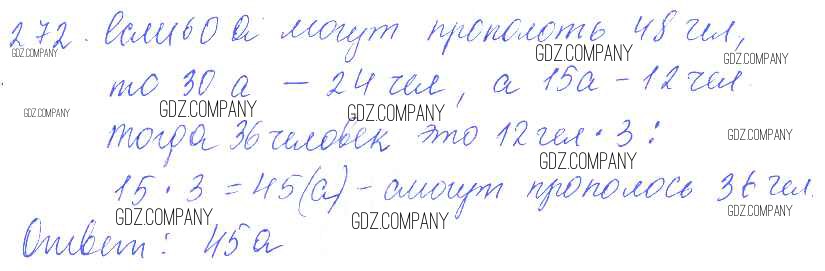 272. Если 60 а могут прополоть 48 чел,
GDZ.COMPANY GDZ.COMPANY GDZ.COMPANY
то 30 а — 24 чел, а 15а - 12 чел.
GDZ.COMPANY GDZ.COMPANY GDZ.COMPANY
тогда 36 человек это 12 чел · 3:
GDZ.COMPANY GDZ.COMPANY
15 · 3 = 45 (а) - смогут прополось 36 чел.
GDZ.COMPANY GDZ.COMPANY GDZ.COMPANY
Ответ: 45 а